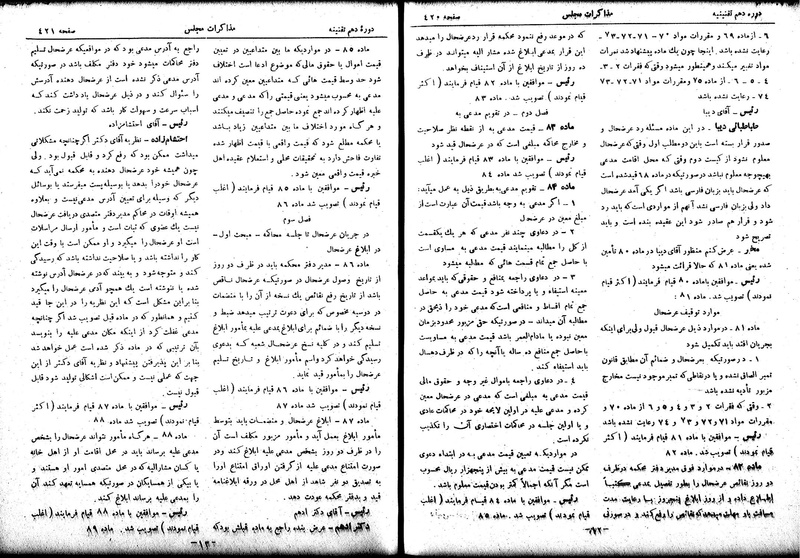 دوره دهم تقنینیه مذاکرات مجلس صفحه ۴۲۰
۶ - از ماده ۶۹ و مقررات مواد ۷۰-۷۱-۷۲-۷۳
رعایت نشده باشد. اینجا چون یک ماده پیشنهاد شد نمرات
مواد تغییر میکند و همینطور میشود وقتی که فقرات ۲ - ۳
۴ - ۵ - ۶ از ماده ۷۵ و مقررات مواد ۷۱-۷۲-۷۳
۷۴ - رعایت نشده باشد
رئیس - آقای دیبا
طباطبائی دیبا - در این ماده مسئله رد عرضحال و
صدور قرار بسته است باین دو مطلب اول وقتی که عرضحال
معلوم نشود از کیست دوم وقتی که محل اقامت مدعی
بهیچوجه معلوم نباشد در صورتیکه در ماده ۶۸ قید شده است
که عرضحال باید بزبان فارسی باشد اگر یکی آمد عرضحال
داد ولی بزبان فارسی نشد آنهم از مواردی است که باید رد
شود و قرار هم صادر شود این عقیده بنده است و باید
تصریح شود
مخبر - عرض کنم منظور آقای دیبا در ماده ۸۰ تأمین
شده یعنی ماده ۸۱ که حالا قرائت میشود
رئیس - موافقین با ماده ۸۰ قیام فرمایند (اکثر قیام
نمودند) تصویب شد. ماده ۸۱ :
موارد توقیف عرضحال
ماده ۸۱ - در موارد ذیل عرضحال قبول ولی برای اینکه
بجریان افتد باید تکمیل شود
۱ - در صورتیکه بعرضحال و ضمائم آن مطابق قانون
تمبر الصاق نشده و یا در نقاطی که تمبر موجود نیست مخارج
مزبور تأدیه نشده باشد
۲ - وقتی که فقرات ۲ و ۳ و ۴ و ۵ و ۶ از ماده ۷۰ و
مقررات مواد ۷۱ و ۷۲ و ۷۳ و ۷۴ رعایت نشده باشد
رئیس - موافقین با ماده ۸۱ قیام فرمایند (اکثر
قیام نمودند) تصویب شد. ماده ۸۲
ماده ۸۲ - در موارد فوق مدیر دفتر محکمه در ظرف
دو روز نقائص عرضحال را بطور تفصیل بمدعی کتباً
اطلاع داده و از روز ابلاغ پنجروز با رعایت مدت
مسافت باو مهلت میدهد که نقائص را رفع کند و در صورتی
که در موعد رفع ننمود محکمه قرار رد عرضحال را میدهد
این قرار بمدعی ابلاغ شده مشار الیه میتواند در ظرف
ده روز از تاریخ ابلاغ از آن استیناف بخواهد.
رئیس - موافقین با ماده ۸۲ قیام فرمایند (اکثر
قیام نمودند) تصویب شد. ماده ۸۳
فصل دوم - در تقویم مدعی به
ماده ۸۳ - قیمت مدعی به از نقطه نظر صلاحیت
و مخارج محاکمه مبلغی است که در عرضحال قید شود
رئیس - موافقین با ماده ۸۳ قیام فرمایند (اغلب
قیام نمودند) تصویب شد ماده ۸۴
ماده ۸۴ - تقویم مدعی به طریق ذیل به عمل میآید:
۱ - اگر مدعی به وجه باشد قیمت آن عبارت است از
مبلغ معین در عرضحال
۲ - در دعاوی چند نفر مدعی که هر یک یکقسمت
از کل را مطالبه مینمایند قیمت مدعی به مساوی است
با حاصل جمع تمام قسمت هائی که مطالبه میشود
۳ - در دعاوی راجعه بمنافع و حقوقی که باید بمواعد
معینه استیفاء و یا پرداخته شود قیمت مدعی به حاصل
جمع تمام اقساط و منافعی است که مدعی خود را ذیحق در
مطالبه آن میداند - در صورتیکه حق مزبور محدود بزمان
معین نبوده یا مادام‌العمر باشد قیمت مدعی به مساویست
با حاصل جمع منافع ده ساله یا آنچه را که در ظرف دهسال
باید استیفاء کند.
۴ - در دعاوی راجعه باموال غیر وجه و حقوق مالی
قیمت مدعی به مبلغی است که مدعی در عرضحال معین
کرده و مدعی علیه در اولین لایحه خود در محاکمات عادی
و یا اولین جلسه در محاکمات اختصاری آن را تکذیب
نکرده است.
در مواردیکه تعیین قیمت مدعی به در ابتداء دعوی
ممکن نیست قیمت مدعی به بیش از پنجهزار ریال محسوب
است مگر آنکه اجمالا کمتر بودن قیمت معلوم باشد.
رئیس - موافقین با ماده ۸۴ قیام فرمایند (اغلب
قیام نمودند) تصویب شد. ماده ۸۵
دوره دهم تقنینیه مذاکرات مجلس صفحه ۴۲۱
ماده ۸۵ - در مواردیکه ما بین متداعیین در تعیین
قیمت اموال یا حقوق مالی که موضوع ادعا است اختلاف
شود حد وسط قیمت هائی که متداعیین معین کرده اند
مدعی به محسوب میشود یعنی قیمتی را که مدعی و مدعی
علیه اظهار کرده اند جمع نموده حاصل جمع را تنصیف میکنند
و هر گاه مورد اختلاف ما بین متداعیین زیاد باشد
یا محکمه مطلع شود که قیمت واقعی با قیمت اظهار شده
تفاوت فاحش دارد به تحقیقات محلی و استعلام عقیده اهل
خبره قیمت واقعی معین میشود.
رئیس - موافقین با ماده ۸۵ قیام فرمایند (اغلب
قیام نمودند) تصویب شد ماده ۸۶
فصل سوم
در جریان عرضحال تا جلسه محاکمه - مبحث اول -
در ابلاغ عرضحال
ماده ۸۶ - مدیر دفتر محکمه باید در ظرف دو روز
از تاریخ وصول عرضحال در صورتیکه عرضحال ناقص
باشد از تاریخ رفع نقائص یک نسخه از آن را با منضمات
در دوسیه مخصوصی که برای دعوت ترتیب میدهد ضبط و
نسخه دیگر را با ضمائم برای ابلاغ بمدعی علیه بمأمور ابلاغ
تسلیم کند و در کلیه نسخ عرضحال شعبه که بدعوی
رسیدگی خواهد کرد و اسم مأمور ابلاغ و تاریخ تسلیم
عرضحال را بمأمور قید نماید.
رئیس - موافقین با ماده ۸۶ قیام فرمایند (اغلب
قیام نمودند) تصویب شد ماده ۸۷
ماده ۸۷ - ابلاغ عرضحال و منضمات باید بتوسط
مأمور ابلاغ بعمل آید و مأمور مزبور مکلف است آن
را در ظرف دو روز بشخص مدعی علیه ابلاغ کند و در
صورت امتناع مدعی علیه از گرفتن اوراق امتناع او را
به تصدیق دو نفر شاهد از اهل محل در ورقه ابلاغنامه
قید و بدفتر محکمه عودت دهد.
رئیس - آقای دکتر ادهم
دکتر ادهم - عرض بنده راجع به ماده قبلش بود که
راجع به آدرس مدعی بود که در مواقعیکه عرضحال تسلیم
دفتر محاکمات میشود خود دفتر مکلف باشد در صورتیکه
آدرس مدعی ذکر نشده است از عرضحال دهنده آدرسش
را سئوال کنند و در ذیل عرضحال یادداشت کنند که
اسباب سرعت و سهولت کار باشد که تولید زحمت نکند.
رئیس - آقای احتشام‌زاده
احتشام‌زاده - نظریه آقای دکتر اگر چنانچه مشکلاتی
میداشت ممکن بود که رفع کرد و قابل قبول بود. ولی
چون همیشه خود عرضحال دهنده به محکمه نمی‌آید که
عرضحال خود را بدهد یا بوسیله پست میفرستد یا بوسائل
دیگر که وسیله برای تعیین آدرس مدعی نیست و بعلاوه
همیشه اوقات در محاکم مدیر دفتر متصدی دریافت عرضحال
نیست یک عضوی که ثبات است و مأمور ارسال مراسلات
است او عرضحال را میگیرد و او ممکن است یا وقت این
کار را نداشته باشد و یا صلاحیت نداشته باشد که رسیدگی
کند و متوجه شود و به بیند که در عرضحال آدرس نوشته
شده یا ننوشته است یک همچو آدمی عرضحال را میگیرد
بنا بر این مشکل است که این نظریه را در این جا قید
کنیم و همانطور که در ماده قبل تصویب شد اگر چنانچه
مدعی غفلت کرد از اینکه مکان مدعی علیه را بنویسد
بآن ترتیبی که در ماده ذکر شده است عمل خواهد شد
بنا بر این پذیرفتن پیشنهاد و نظریه آقای دکتر از این
جهت که عملی نیست و ممکن است اشکالی تولید شود قابل
قبول نیست.
رئیس - موافقین با ماده ۸۷ قیام فرمایند (اکثر
قیام نمودند) تصویب شد ماده ۸۸
ماده ۸۸ - هر گاه مأمور نتواند عرضحال را بشخص
مدعی علیه برساند باید در محل اقامت او از اهل خانه
یا کسان مشارالیه که در محل متصدی امور او هستند و
یا بیکی از همسایگان در صورتیکه همسایه تعهد کند آن
را بمدعی علیه برساند ابلاغ کند.
رئیس - موافقین با ماده ۸۸ قیام فرمایند (اغلب
قیام نمودند) تصویب شد. ماده ۸۹